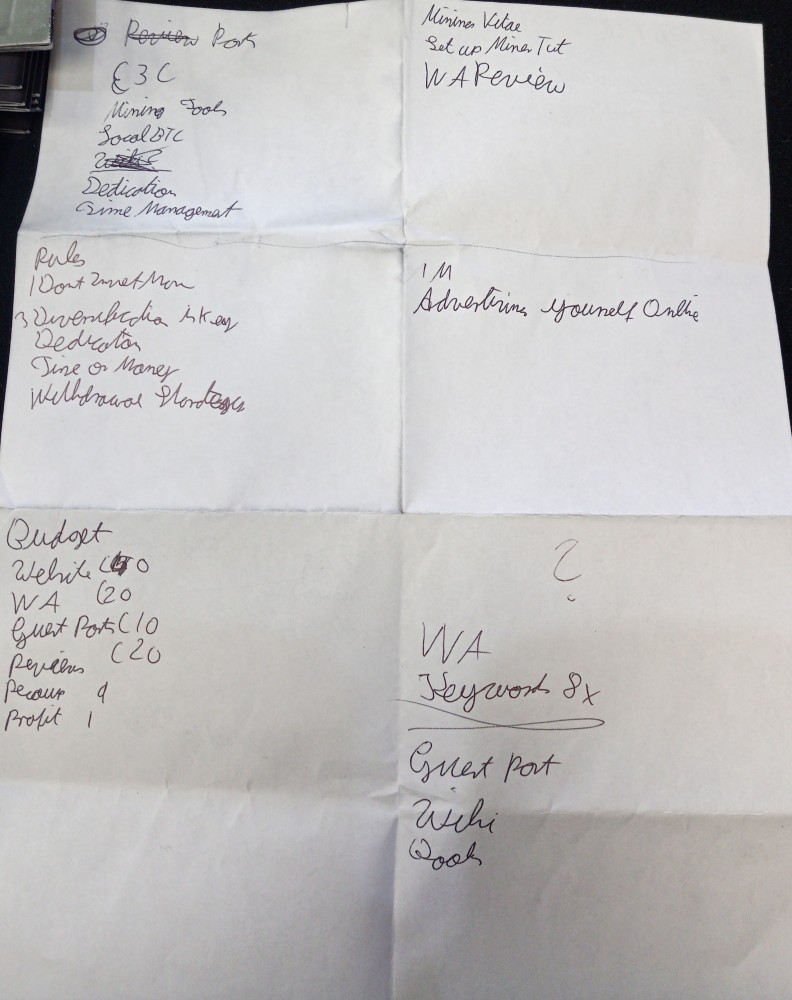 Review Post
E3C
Mining Tools
Local BTC
Dedication
Time Management
Minines Vitae
Set up Miner Tut
WA Review
Rules
1 Dont Invest Mon
3 Diversification is Key
Dedication
Time or Money
Withdrawal
1 M
Advertising Yourself Online
Budget
Website
WA (20
Guest Posts (10
Reviews (20
Recoup 9
Profit 1
?
WA
Keywords 8x
Guest Post
Wiki